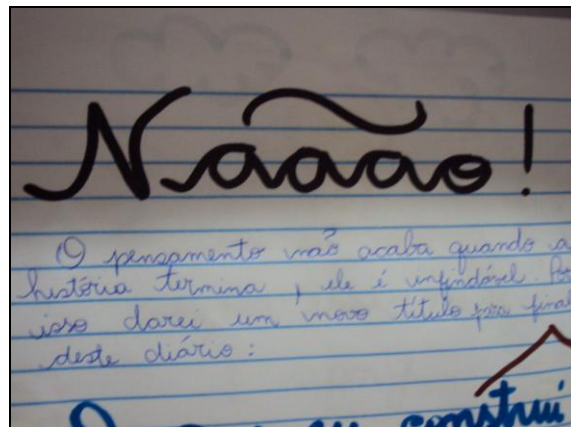 Naãao!
O pensamento não acaba quando a
história termina, ele é infindável. Por
isso darei um novo título pra final
deste diário:
eu construi